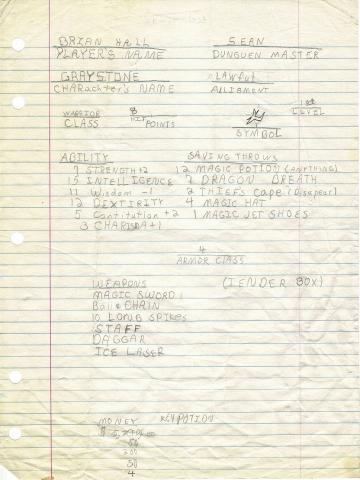 BRIAN HALL
SEAN
PLAYER'S NAME
DUNGUEN MASTER
GRAYSTONE
LAWFUL
CHARAchter's NAME
ALLIGMENT
WARRIOR
8
1st
CLASS
HIT POINTS
LEVEL
SYMBOL
ABILITY
SAVING THROWS
7 STRENGTH +2
12 MAGIC POTION (ANYTHING)
15 INTELLIGENCE
7 DRAGON BREATH
11 Wisdom -1
2 THIEF'S CAPE (Disapear)
12 DEXTIRITY
4 MAGIC HAT
5 Contitution +2
1 MAGIC JET SHOES
3 CHARISMA +1
4
ARMOR CLASS
WEAPONS
(TENDER BOX)
MAGIC SWORD 1
Ball & CHAIN
10 LONG SPIKES
STAFF
DAGGAR
ICE LASER
MONEY
POTION
50
200
50
4